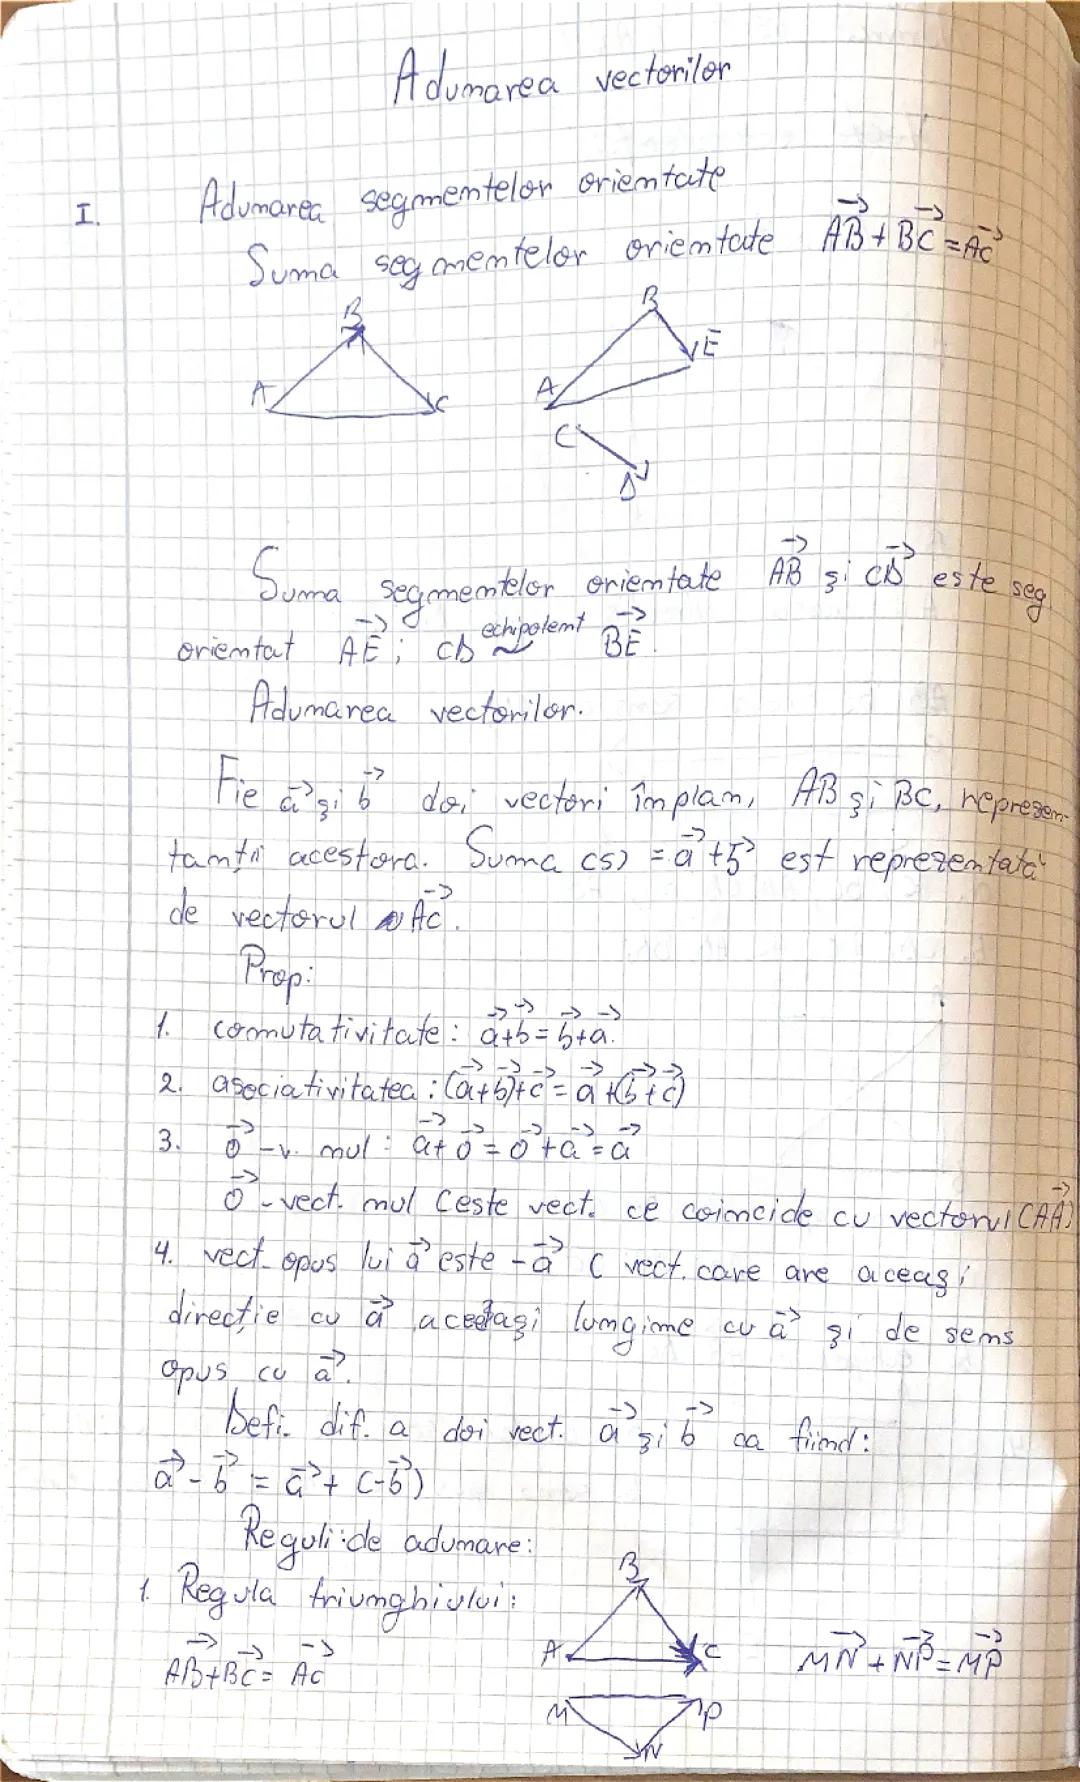 Adunarea vectorilor
I. Adunarea segmentelor orientate
Suma segmentelor orientate $\overrightarrow{AB} + \overrightarrow{BC} = \overrightarrow{AC}$
B
A
C
B
E
A
C
D
Suma segmentelor orientate $\overrightarrow{AB}$ și $\overrightarrow{CD}$ este seg
orientat $\overrightarrow{AE}$; CD $\overset{echipolent}{\sim}$ $\overrightarrow{BE}$.
Adunarea vectorilor.
Fie $\vec{a}$ și $\vec{b}$ doi vectori în plan, AB și BC, reprezen-
tanții acestora. Suma (s) = $\vec{a}$ + $\vec{b}$ est reprezentată
de vectorul $\overrightarrow{AC}$.
Prop:
1. comutativitate: $\vec{a} + \vec{b} = \vec{b} + \vec{a}$.
2. asociativitatea: $(\vec{a} + \vec{b}) + \vec{c} = \vec{a} + (\vec{b} + \vec{c})$
3. $\vec{0}$ - v. nul: $\vec{a} + \vec{0} = \vec{0} + \vec{a} = \vec{a}$
$\vec{0}$ - vect. nul (este vect. ce coincide cu vectorul ($\overrightarrow{AA}$)
4. vect. opus lui $\vec{a}$ este $-\vec{a}$ ( vect. care are aceași
direcție cu $\vec{a}$ aceeași lungime cu $\vec{a}$ și de sens
opus cu $\vec{a}$.
Defi. dif. a doi vect. $\vec{a}$ și $\vec{b}$ ca fiind:
$\vec{a} - \vec{b} = \vec{a} + (-\vec{b})$
Reguli de adunare:
1. Regula triunghiului:
$\overrightarrow{AB} + \overrightarrow{BC} = \overrightarrow{AC}$
B
A
C
$\overrightarrow{MN} + \overrightarrow{NP} = \overrightarrow{MP}$
M
P
N